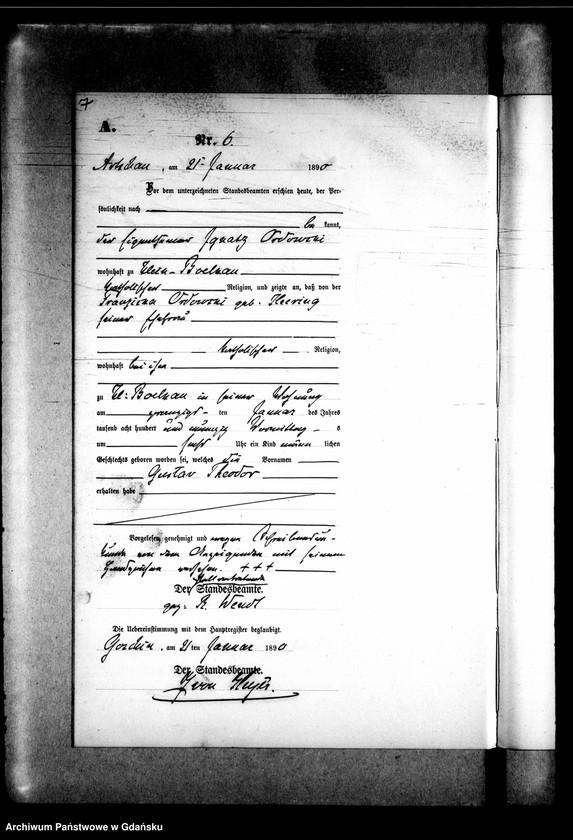 7
A.
Nr. 6.
am 21ten Januar 1890
Vor dem unterzeichneten Standesbeamten erschien heute, der Per-
sönlichkeit nach
be kannt,
der Eigenthümer Ignatz Ordowski
wohnhaft zu Klein-Boelkau
katholischer Religion, und zeigte an, daß von der
Franziska Ordowski geb. Heering
seiner Ehefrau
katholischer Religion,
wohnhaft bei ihm
zu Kl: Boelkau in seiner Wohnung
am zwanzigst ten Januar des Jahres
tausend acht hundert und neunzig Vormittag s
um sechs Uhr ein Kind männ lichen
Geschlechts geboren worden sei, welches die Vornamen
Gustav Theodor
erhalten habe
Vorgelesen, genehmigt und wegen Schreibensun-
kunde von dem Anzeigenden mit seinem
Handzeichen versehen. + + +
Der Standesbeamte.
gez: R. Wendt
Die Uebereinstimmung mit dem Hauptregister beglaubigt.
am 21 ten Januar 1890
Der Standesbeamte.
Archiwum Państwowe w Gdańsku